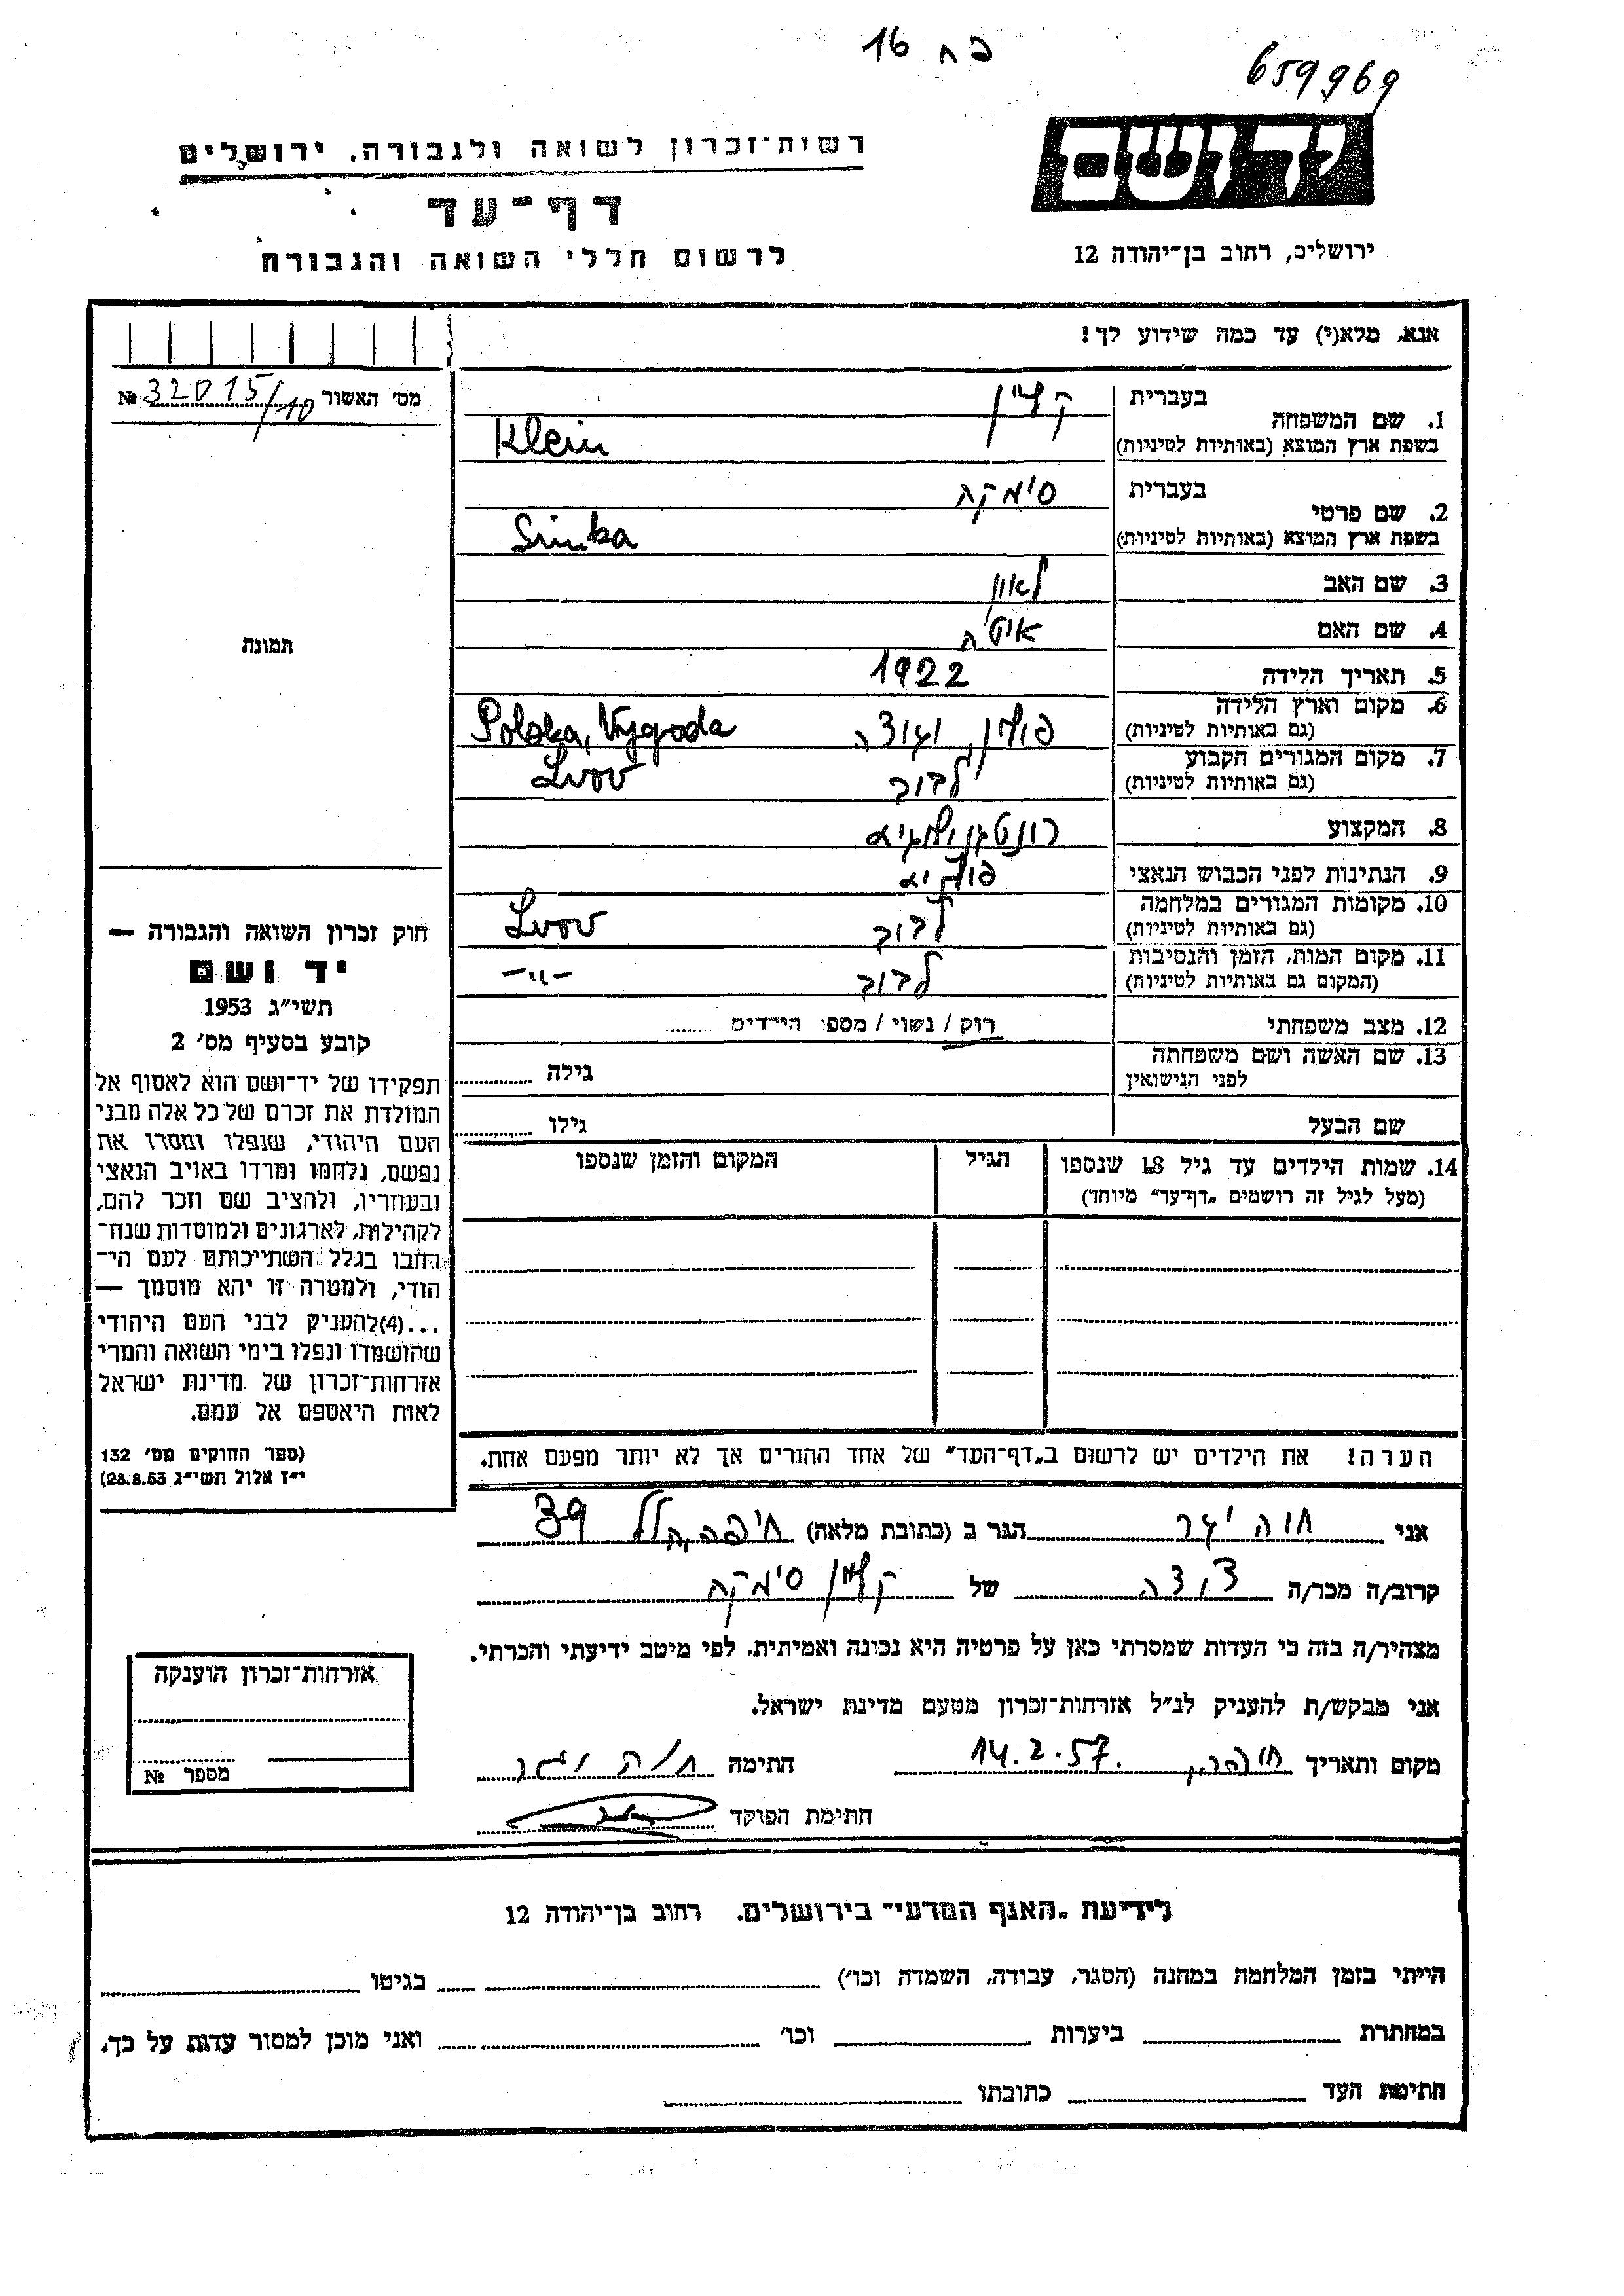 16 כח
659969
יד ושם
רשות־זכרון לשואה ולגבורה, ירושלים
דף־עד
לרשום חללי השואה והגבורה
ירושלים, רחוב בן־יהודה 12
אנא, מלא(י) עד כמה שידוע לך!
מס׳ האשור № 32015/10
1. שם המשפחה
בעברית קליין
בשפת ארץ המוצא (באותיות לטיניות) Klein
2. שם פרטי
בעברית סימקה
בשפת ארץ המוצא (באותיות לטיניות) Simka
3. שם האב לאון
4. שם האם
5. תאריך הלידה 1922
6. מקום וארץ הלידה
(גם באותיות לטיניות) פולין, Polska, Vygoda
7. מקום המגורים הקבוע
(גם באותיות לטיניות) לבוב Lvov
8. המקצוע
9. הנתינות לפני הכבוש הנאצי
10. מקומות המגורים במלחמה
(גם באותיות לטיניות) לבוב Lvov
11. מקום המות, הזמן והנסיבות
(המקום גם באותיות לטיניות) לבוב -"-
12. מצב משפחתי רווק / נשוי / מספר הילדים
13. שם האשה ושם משפחתה
לפני הנישואין גילה
שם הבעל גילו
14. שמות הילדים עד גיל 18 שנספו
(מעל לגיל זה רושמים „דף־עד״ מיוחד)
הגיל
המקום והזמן שנספו
הערה! את הילדים יש לרשום ב„דף־העד״ של אחד ההורים אך לא יותר מפעם אחת.
תמונה
חוק זכרון השואה והגבורה —
יד ושם
תשי״ג 1953
קובע בסעיף מס׳ 2
תפקידו של יד־ושם הוא לאסוף אל
המולדת את זכרם של כל אלה מבני
העם היהודי, שנפלו ומסרו את
נפשם, נלחמו ומרדו באויב הנאצי
ובעוזריו, ולהציב שם וזכר להם,
לקהילות, לארגונים ולמוסדות שנח־
רבו בגלל השתייכותם לעם הי־
הודי, ולמטרה זו יהא מוסמך —
...(4)להעניק לבני העם היהודי
שהושמדו ונפלו בימי השואה והמרי
אזרחות־זכרון של מדינת ישראל
לאות היאספם אל עמם.
(ספר החוקים מס׳ 132
י״ז אלול תשי״ג 28.8.53)
אני חוה הגר ב (כתובת מלאה) חיפה, הלל 39
קרוב/ה מכר/ה דודה של קליין סימקה
מצהיר/ה בזה כי העדות שמסרתי כאן על פרטיה היא נכונה ואמיתית, לפי מיטב ידיעתי והכרתי.
אני מבקש/ת להעניק לנ״ל אזרחות־זכרון מטעם מדינת ישראל.
מקום ותאריך 14.2.57 חתימה חוה
חתימת הפוקד
אזרחות־זכרון הוענקה
מספר №
לידיעת „האגף המדעי״ בירושלים, רחוב בן־יהודה 12
הייתי בזמן המלחמה במחנה (הסגר, עבודה, השמדה וכו׳) בגיטו
במחתרת ביערות וכו׳ ואני מוכן למסור עדות על כך.
חתימת העד כתובתו